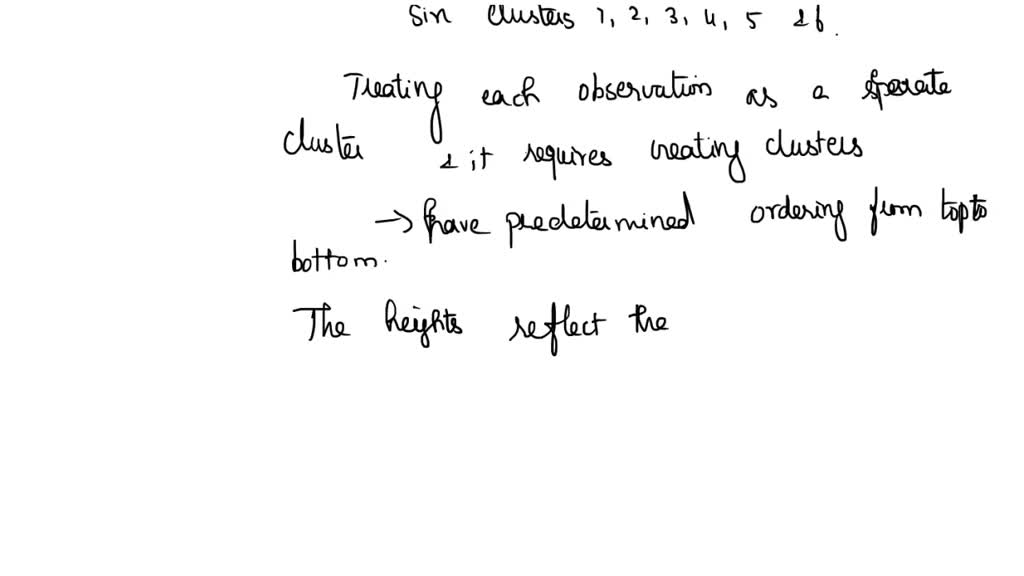 Six clusters 1, 2, 3, 4, 5 & 6.
Treating each observation as a sperate
cluster & it requires creating clusters
→ have predetermined ordering from top to
bottom.
The heights reflect the